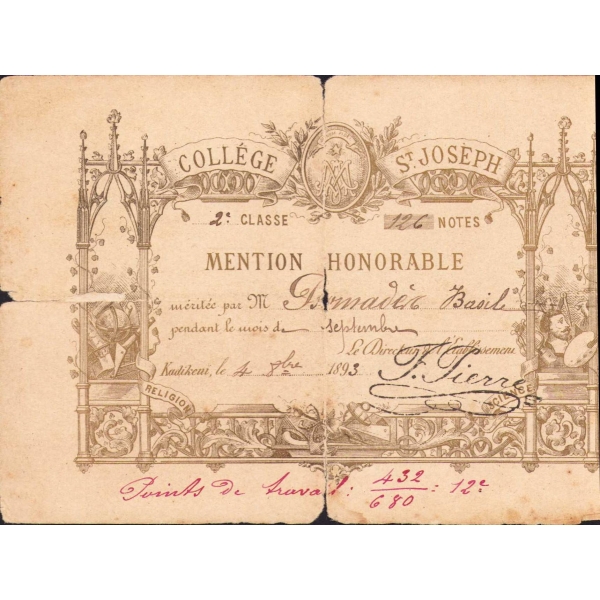 COLLÉGE ST. JOSÈPH
2e CLASSE 126 NOTES
MENTION HONORABLE
méritée par M Basile
pendant le mois de septembre
Le Directeur de l'Etablissement
Kadikeni, le 4 8bre 1893
F. Pierre
RELIGION
Points de travail: 432/680 : 12e